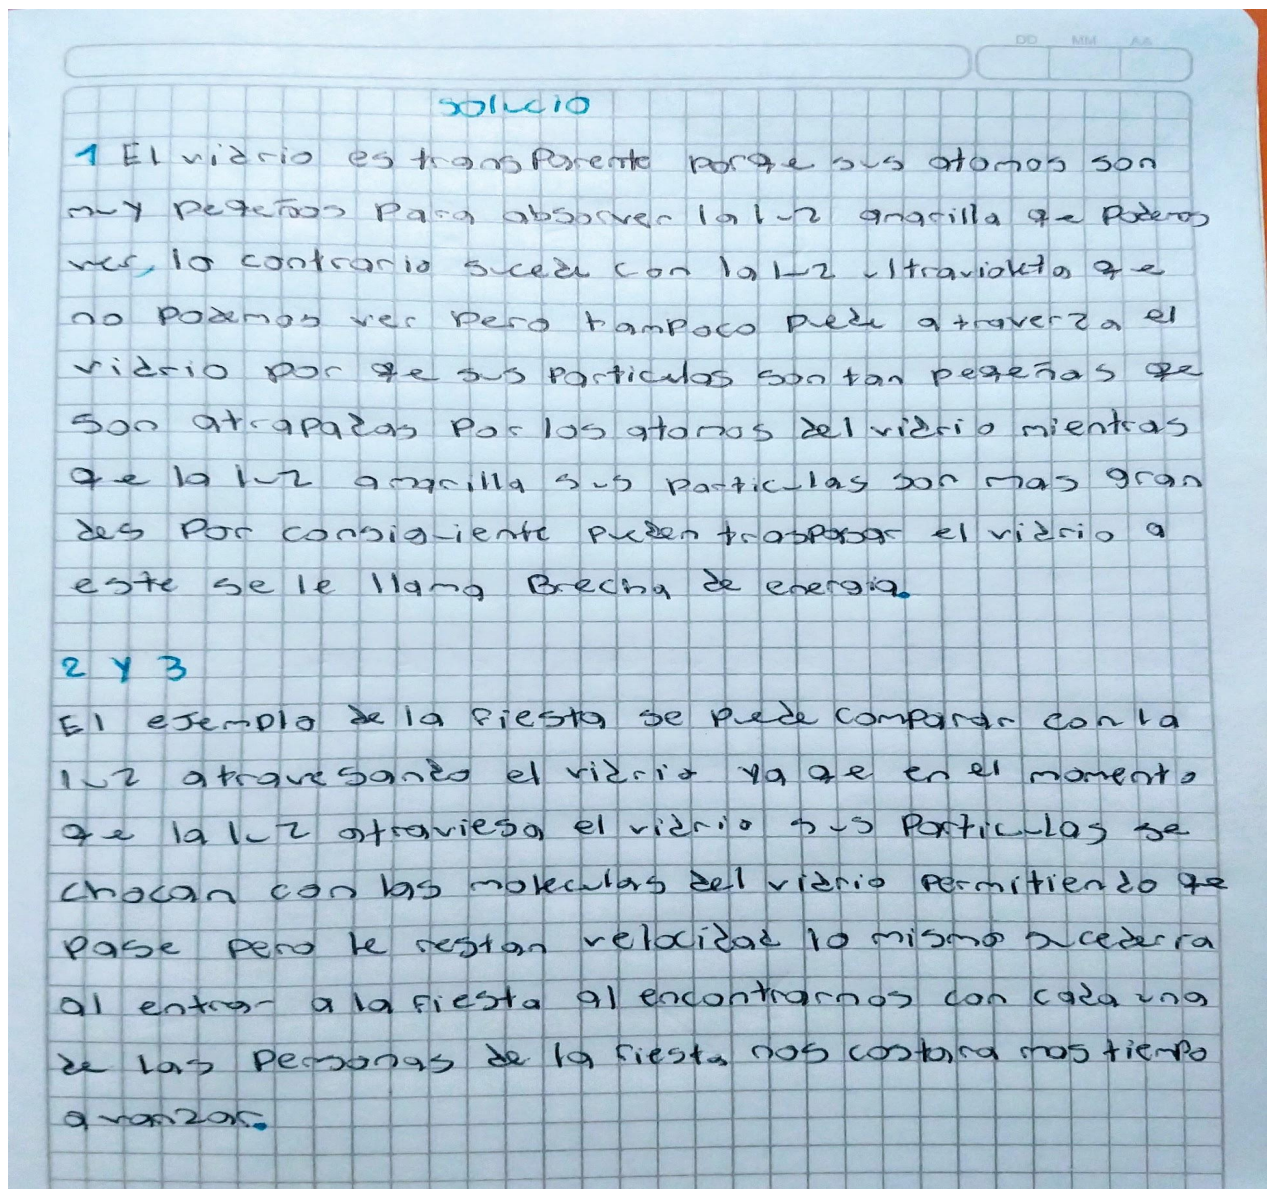 DD MM AA
solucio
1 El vidrio es transparente porqe sus atomos son
muy peqeños para absorver la luz amarilla qe podemos
ver, lo contrario sucede con la luz ultravioleta qe
no podemos ver pero tampoco puede atraverza el
vidrio por qe sus particulas son tan peqeñas qe
son atrapadas por los atomos del vidrio mientras
qe la luz amarilla sus particulas son mas gran
des por consiguiente pueden traspasar el vidrio a
este se le llama Brecha de energia.
2 y 3
El ejemplo de la fiesta se puede comparar con la
luz atravesando el vidrio ya qe en el momento
qe la luz atraviesa el vidrio sus particulas se
chocan con las moleculas del vidrio permitiendo qe
pase pero le restan velocidad lo mismo sucederra
al entrar a la fiesta al encontrarnos con cada una
de las personas de la fiesta nos costara mas tiempo
avanzar.